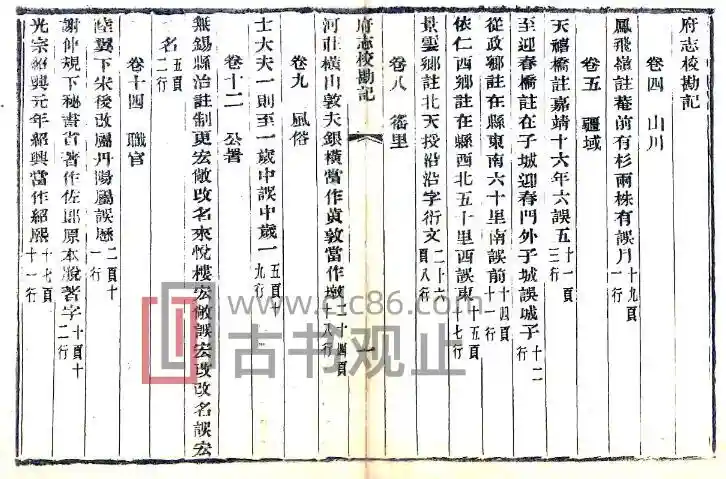 府志校勘記
卷四 山川
鳳飛嶺註菴前有杉兩株有誤月十九頁一行
卷五 疆域
天禧橋註嘉靖十六年六誤五十一頁三行
至迎春橋註在子城迎春門外子城誤城子十二行
從政鄉註在縣東南六十里南誤前十四頁十一行
依仁西鄉註在縣西北五十里西誤東十五頁十七行
景雲鄉註北天授沿沿字衍文二十六頁八行
卷八
府志校勘記
一
河莊橫山敦夫銀橫當作黃敦當作二十四頁十八行
卷九 風俗
士大夫一則至一歲中誤中歲一五頁十九行
卷十二 公署
無錫縣治註制更宏敞改名來悅樓宏敞誤宏改改名誤宏
名五頁二行
陸翼下宋後改屬丹湯屬誤歷二頁十一行
卷十四 職官
謝仲規下秘書省著作佐郎原本脫著字十頁十二行
光宗紹興元年紹興當作紹熙十七頁十一行
www.cnc86.com
古书观止